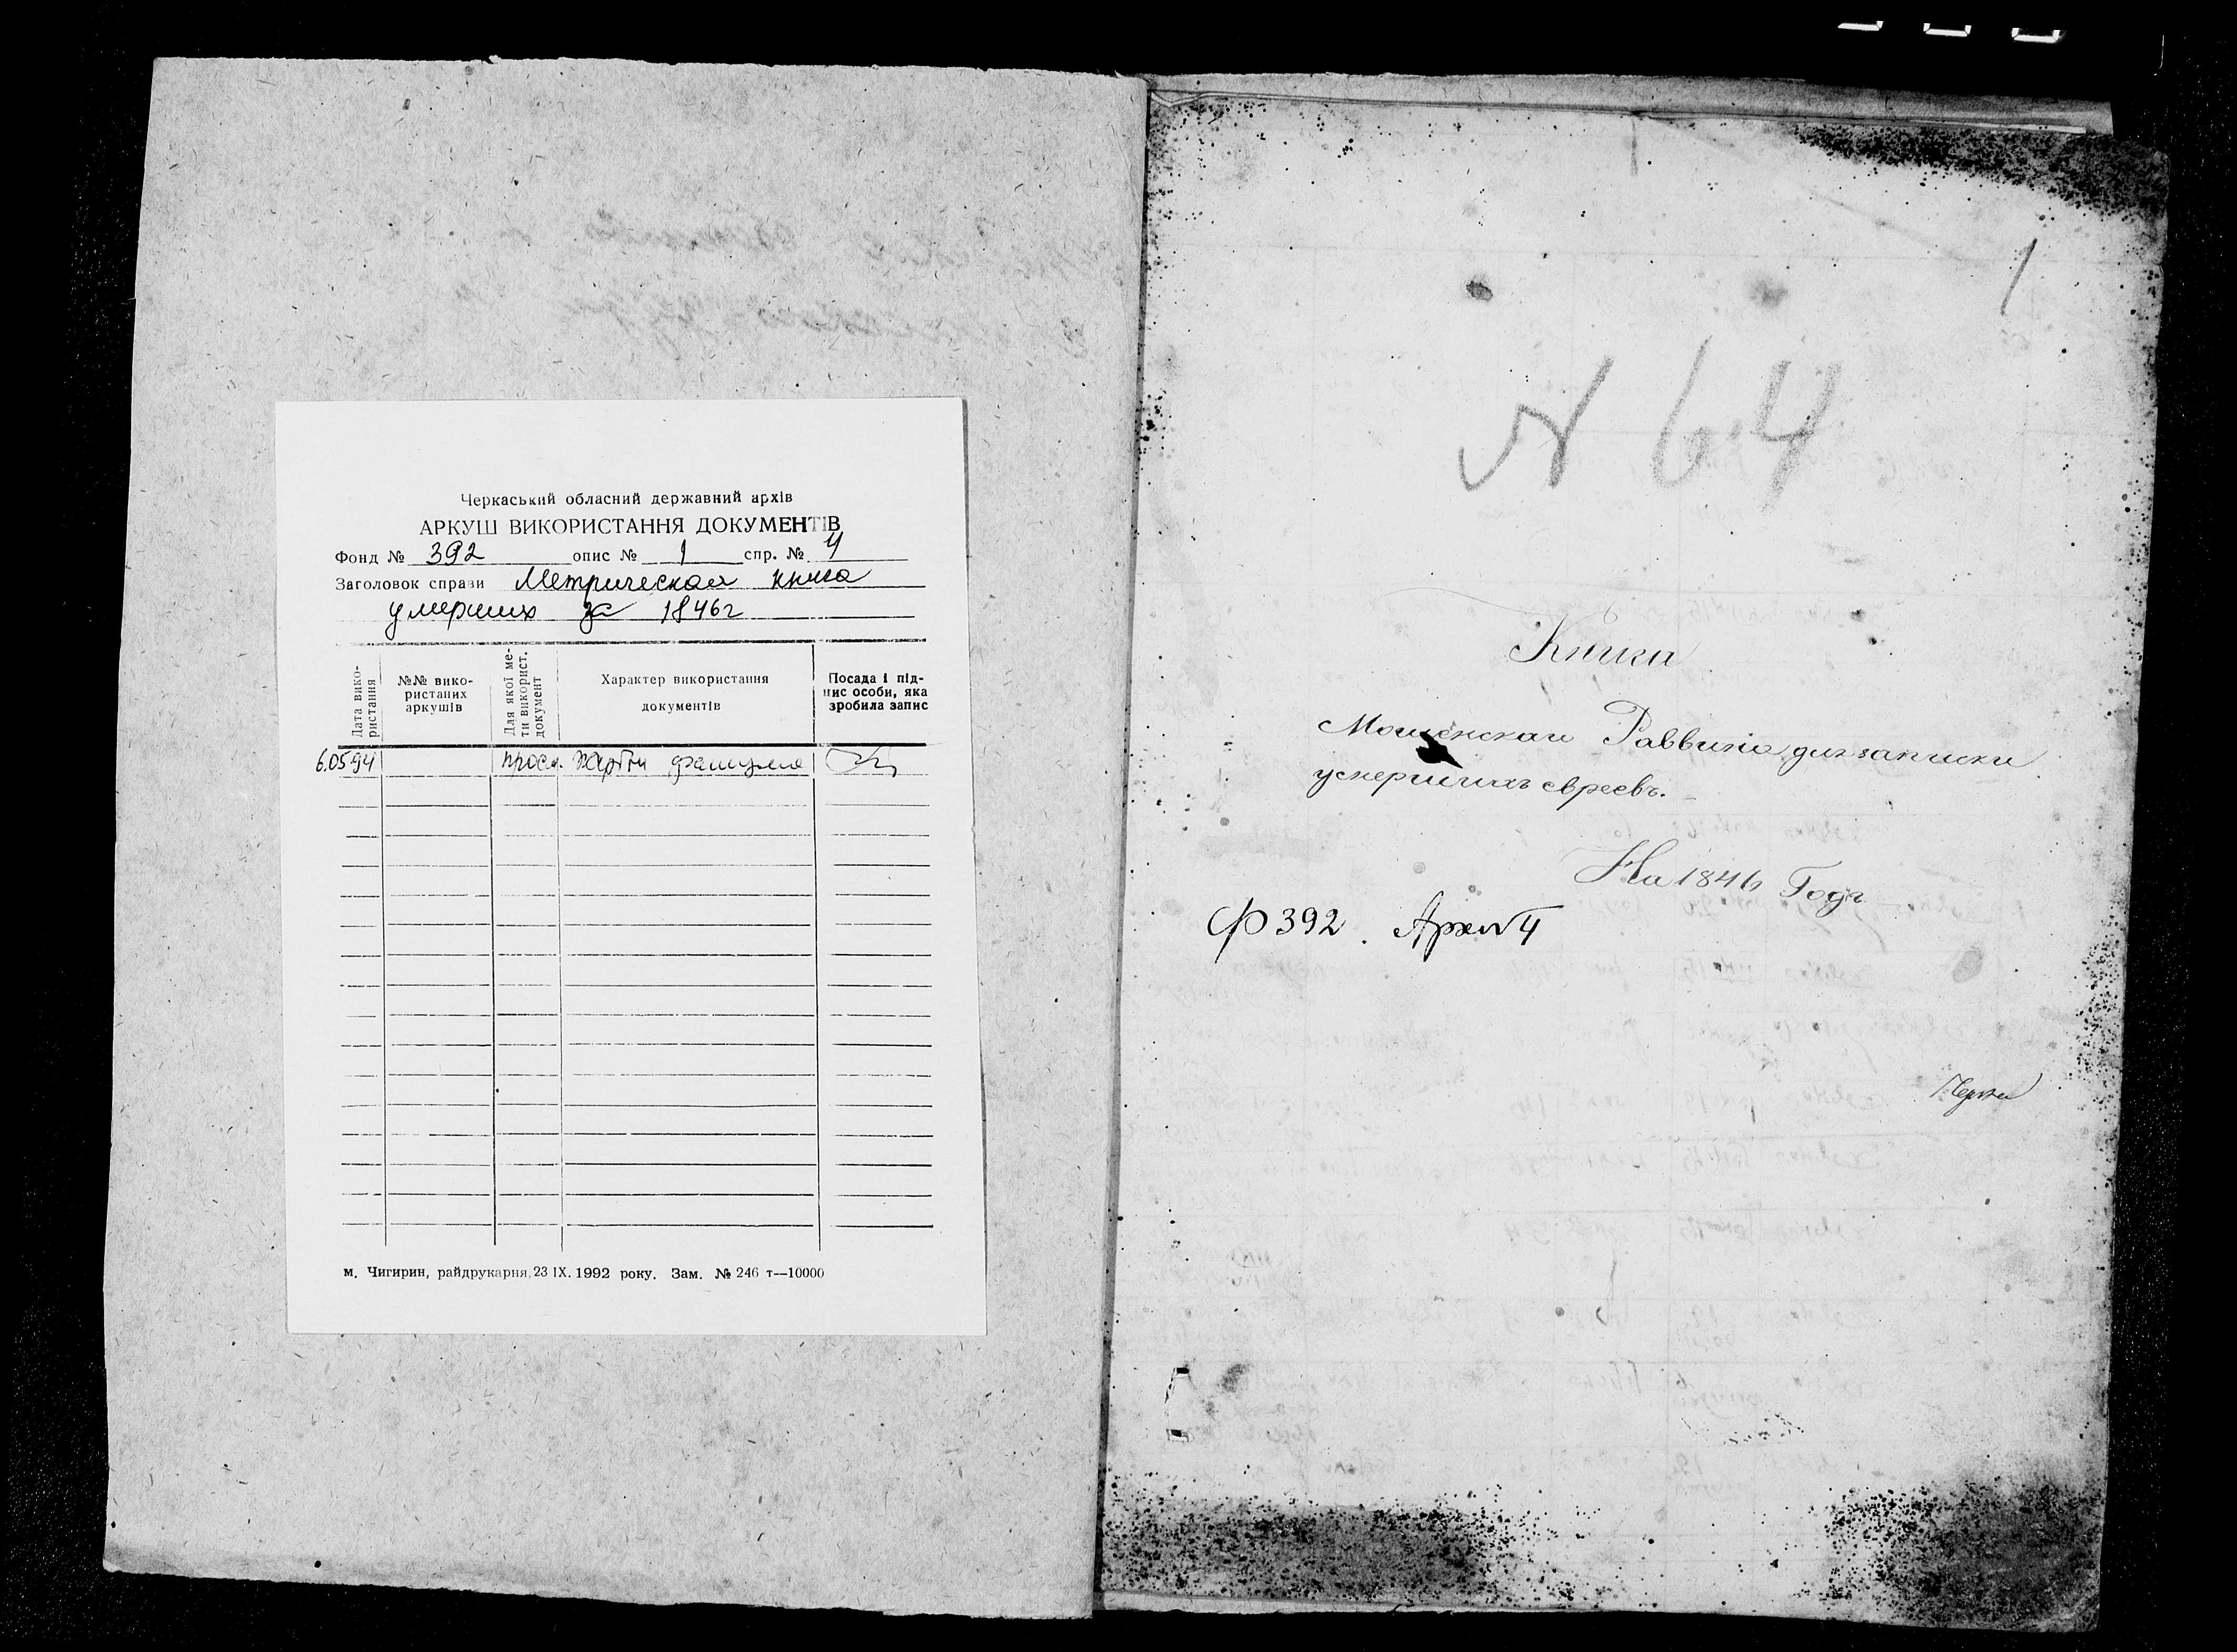 Черкаський обласний державний архів
АРКУШ ВИКОРИСТАННЯ ДОКУМЕНТІВ
Фонд № 392 опис № 1 спр. № 4
Заголовок справи Метрическая книга
умерших за 1846г
Дата вико-
ристання
№№ вико-
ристаних
аркушів
Для якої ме-
ти використ.
документ
Характер використання
документів
Посада і під-
пис особи, яка
зробила запис
6.05.94 фамилия
м. Чигирин, райдрукарня, 23 IX. 1992 року. Зам. № 246 т—10000
1
N 64
Книга
Мошенскаго Раввина для записки
умершихъ евреевъ.
На 1846 Годъ
Ф 392. Арх N 4